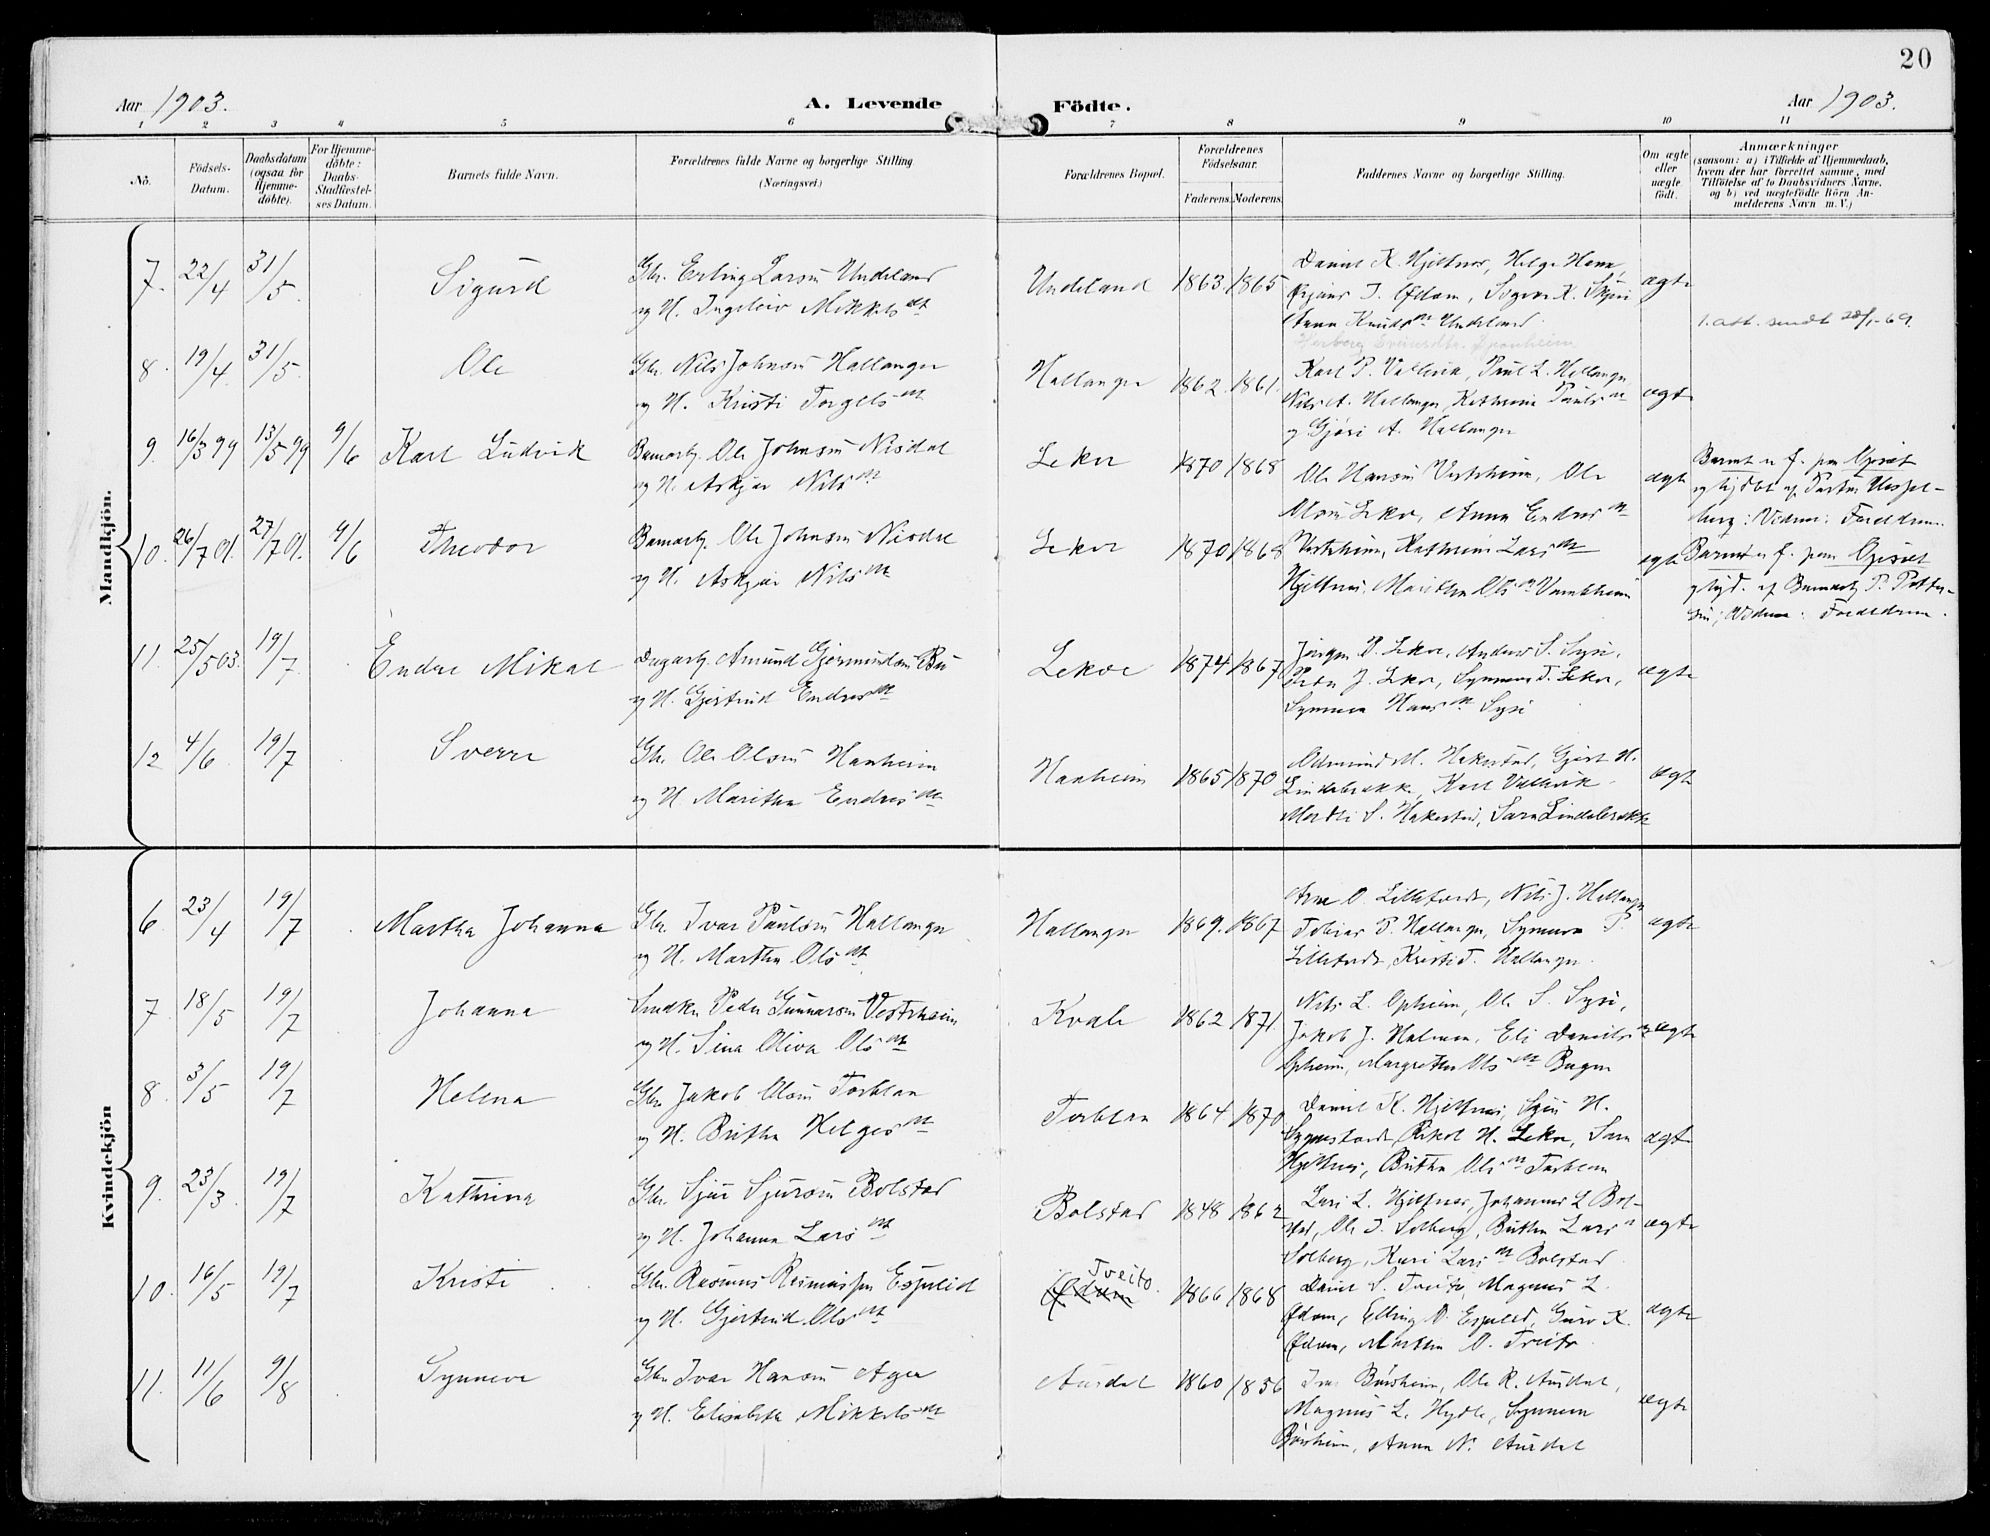 20
Aar 1903.
A. Levende Födte.
Aar 1903.
1 2 3 4 5 6 7 8 9 10 11
No.
Födsels-Datum.
Daabsdatum (ogsaa for Hjemme-döbte).
For Hjemme-döbte: Daabs-Stadfæstel-ses Datum.
Barnets fulde Navn.
Forældrenes fulde Navne og borgerlige Stilling
(Næringsvei.)
Forældrenes Bopæl.
Forældrenes Födselsaar.
Faderens. Moderens.
Faddernes Navne og borgerlige Stilling.
Om ægte eller uægte födt.
Anmærkninger
(saasom: a) i Tilfælde af Hjemmedaab, hvem der har forrettet samme, med Tilföielse af to Daabsvidners Navne, og b) ved uægtefödte Börn An-melderens Navn m. V.)
Mandkjön.
7. 22/4 31/5 Sigurd
Gbr. Erling Larsen Undeland
og H. Ingeleiv Mikkelsdt
Undeland 1863. 1865
Daniel K. Hjeltnes, Helge
Anna Undeland
ægte
1. att. sendt 20/1-69.
8. 19/4. 31/5. Ole
Gbr. Nils Johnsen Hallanger
og H. Kristi Torgelsdt
Hallanger 1862. 1861.
Karl P. Vallevik, Paul L. Hallanger
Nils A. Hallanger, Kathrina Paulsdt
og A. Hallanger
ægte
9. 16/3 99 13/5 99 9/6 Karl Ludvik
Ole Johnsen Nisdal
og H. Askjær Nilsdt
Lekve 1870 1868
Ole Hansen Vestrheim, Ole
Olsen Lekve, Anna Endresdt
ægte
Barnet er f. paa
10. 26/7 01. 27/7 01. 4/6 Theodor
Ole Johnsen Nisdal
og H. Askjær Nilsdt
Lekve 1870 1868
Vestrheim, Kathrina Larsdt
Hjeltnes, Olsdt
ægte
Barnet er f. paa
Vidner: Forældrene.
11. 25/5 03. 19/7. Endre Mikal
Dagarb. Amund Gjermundsen Bu
og H. Gjertrud Endresdt
Lekve 1874 1867
Jörgen P. Lekve, Anders S. Syse,
J. Lekve, Synneva T. Lekve,
Synneva Hansdt Syse
ægte
12 4/6. 19/7 Sverre
Gbr. Ole Olsen Hanheim
og H. Maritha Endresdt
Hanheim 1865 1870
M. Hakestad, Gjert H.
Lindebrekke, Karl Vallevik
S. Hakestad, Sara Lindebrekke
ægte
Kvindekjön
6. 23/4 19/7 Martha Johanna
Gbr. Ivar Paulsen Hallanger
og H. Martha Olsdt
Hallanger 1869. 1867
Arne O. Nils J. Hallanger
Tobias P. Hallanger, Synneva P.
Kristi T. Hallanger.
ægte
7. 18/5 19/7 Johanna
Peder Gunnarsen Vestrheim
og H. Sina Oliva Olsdt
Kvale 1862 1871.
Nils L. Opheim, Ole S. Syse,
Jakob J. Eli Danielsdt
Opheim, Margretha Olsdt
ægte
8. 3/5 19/7 Helena
Gbr. Jakob Olsen Torblaa
og H. Britha Helgesdt
Torblaa 1864 1870
Daniel K. Hjeltnes, H.
H. Lekve, Sara
Hjeltnes, Britha Olsdt Torblaa
ægte
9. 23/3. 19/7 Kathrina
Gbr. Sjur Sjursen Bolstad
og H. Johanna Larsdt
Bolstad 1848 1862
Lars L. Hjeltnes, Johannes L. Bol-
stad, Ole J. Solberg, Britha Larsdt
Solberg, Kari Larsdt Bolstad.
ægte
10. 16/5 19/7 Kristi
Gbr. Rasmus Rasmussen Espelid
og H. Gjertrud Olsdt
Tveito.
1866 1868
Daniel S. Tveito, Magnus L.
Elling O. Espelid, Guro K.
Martha O. Tveito.
ægte
11. 11/6 9/8 Synneve
Gbr. Ivar Hansen Aga
og H. Elisabeth Mikkelsdt
Ausdal 1860 1856
Ivar Börsheim, Ole R. Ausdal,
Magnus L. Hydle, Synneva
Börsheim, Anna N. Ausdal
ægte